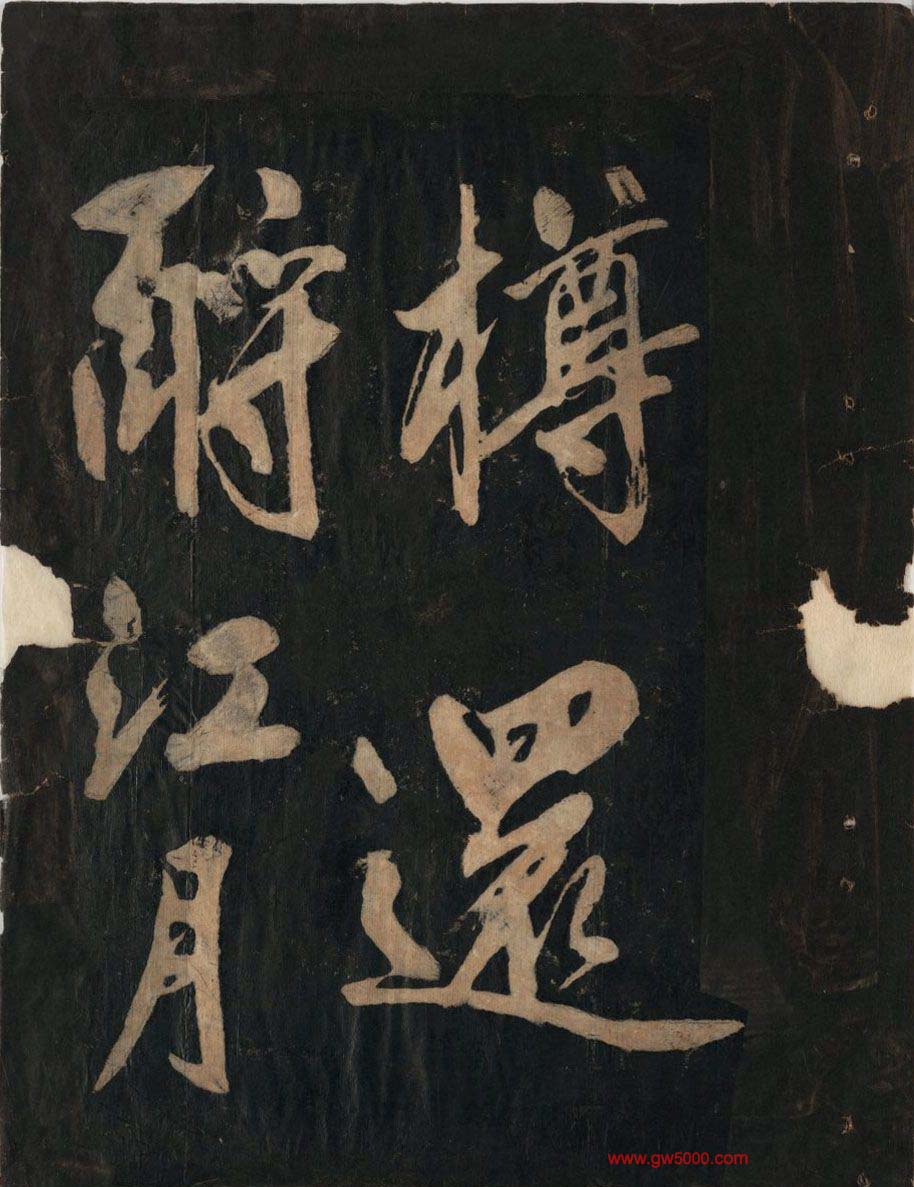 樽還
酹江月
www.gw5000.com